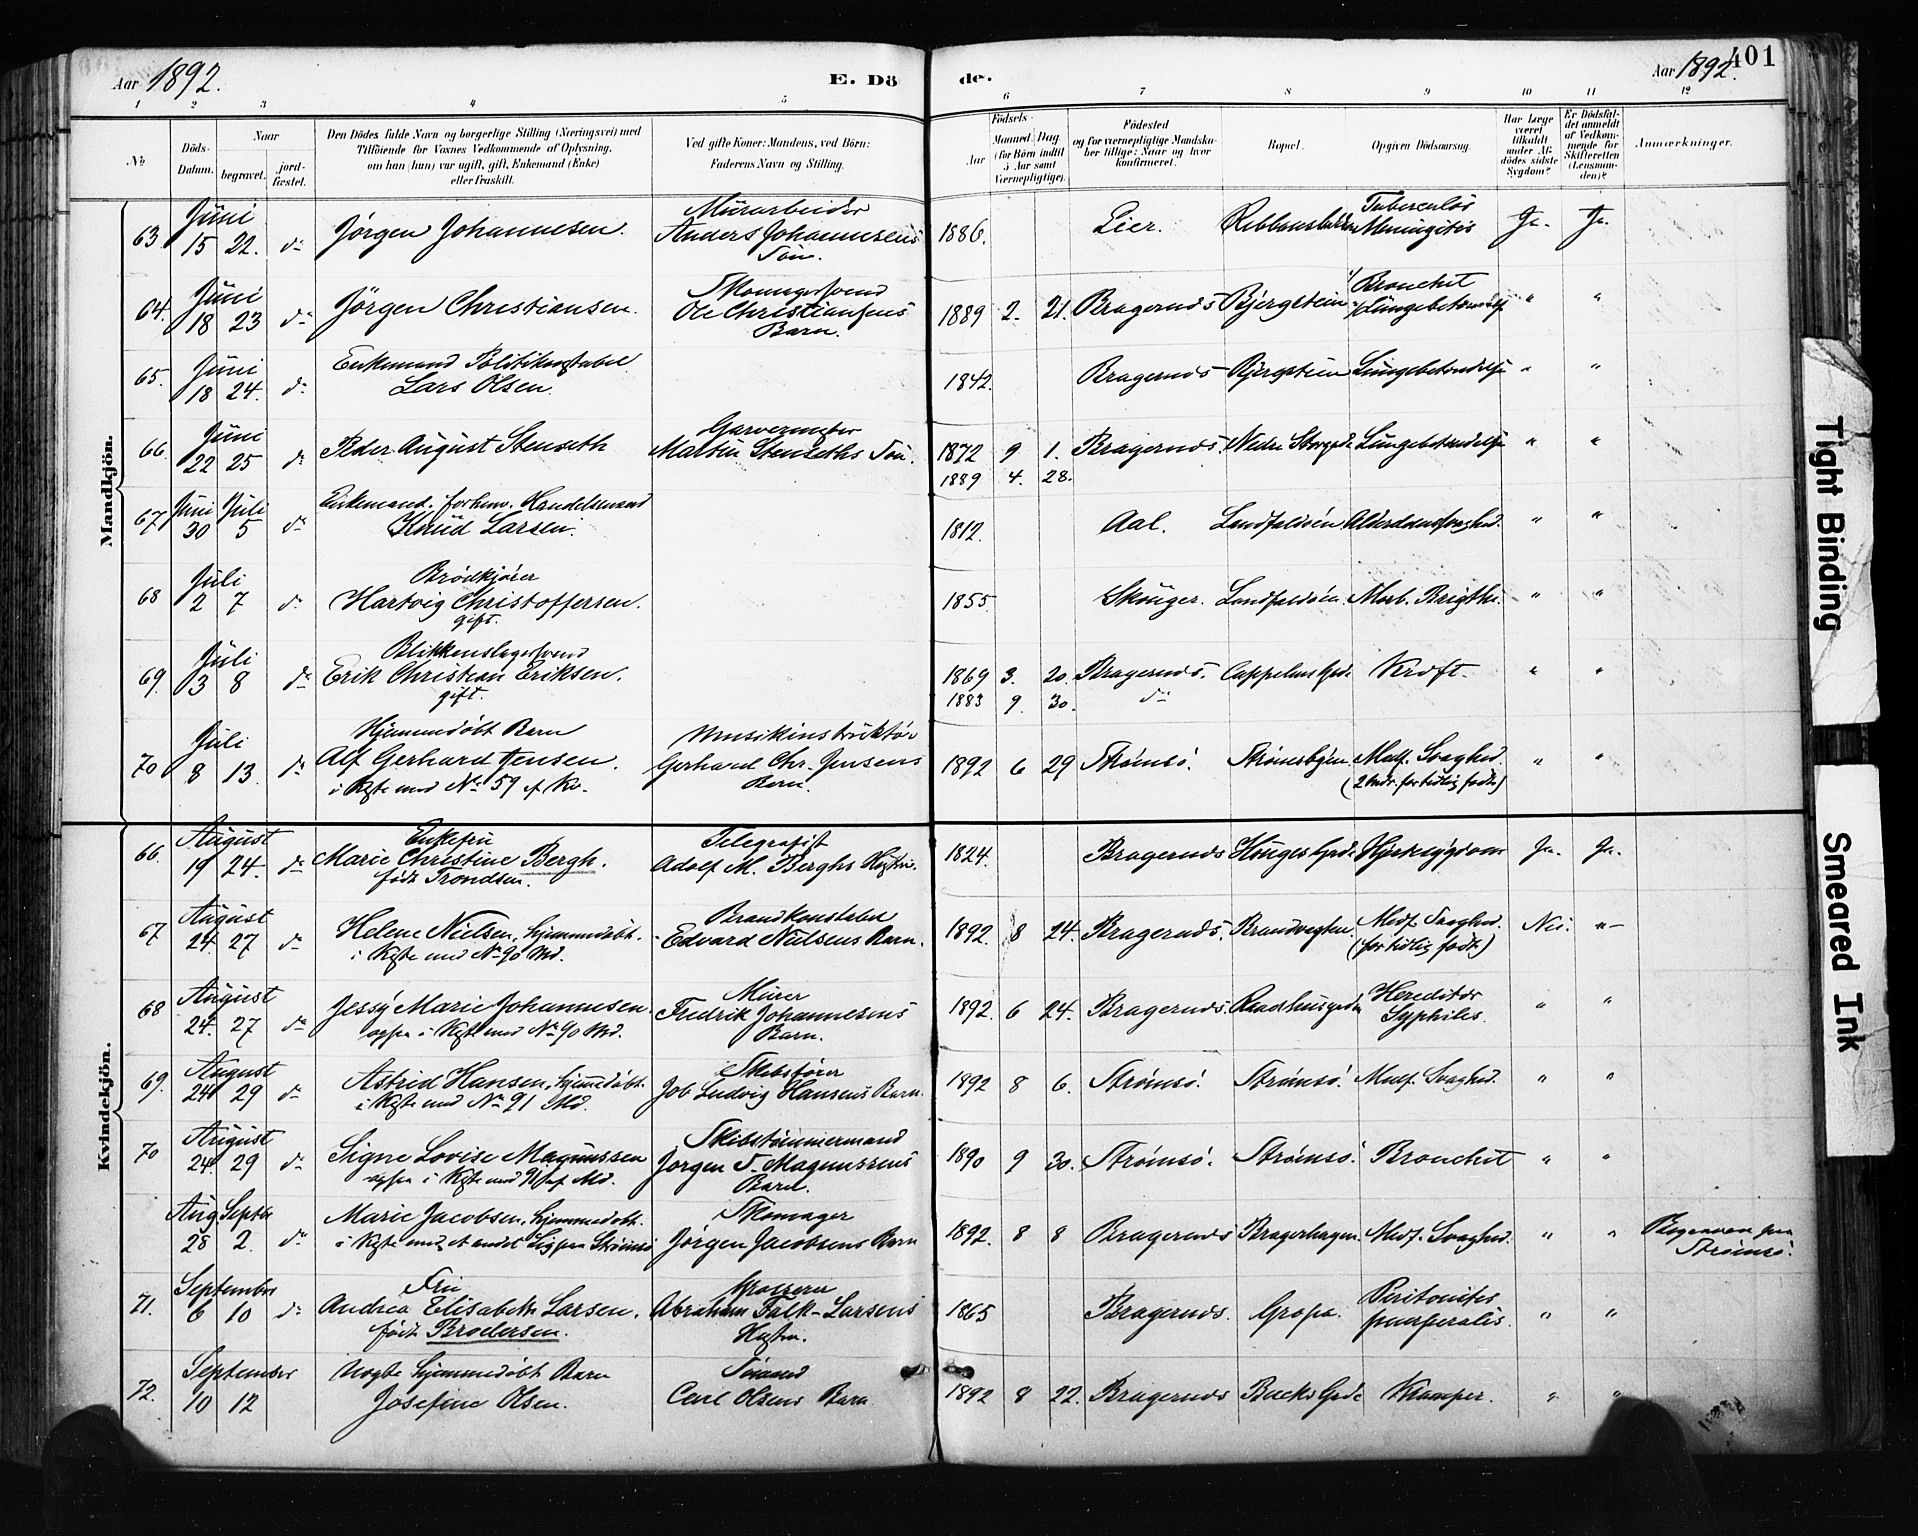 Aar 1892.
E. Dö
de.
Aar 1892.
401
1 2 3 4 5 6 7 8 9 10 11 12
No
Döds-Datum.
Naar
begravet.
jord-fæstet.
Den Dödes fulde Navn og borgerlige Stilling (Næringsvei) med
Tilföiende for Voxnes Vedkommende af Oplysning,
om han (hun) var ugift, gift, Enkemand (Enke)
eller fraskilt.
Ved gifte Koner: Mandens, ved Börn:
Faderens Navn og Stilling.
Födsels-
Aar
Maaned. Dag.
(for Börn indtil
5 Aar samt
Værnepligtige).
Födested
og for værnepligtige Mandska-
ber tillige: Naar og hvor
konfirmeret.
Bopæl.
Opgiven Dödsaarsag.
Har Læge
været
tilkaldt
under Af-
dödes sidste
Sygdom?
Er Dödsfal-
det anmeldt
af Vedkom-
mende for
Skifteretten
(Lensman-
den)?
Anmærkninger.
Mandkjön.
63. Juni 15 22. do Jørgen Johannesen. Murarbeider Anders Johannesens Søn. 1886. Lier. Tuberculøs Meningitis Ja. Ja.
64. Juni 18 23 do Jörgen Christiansen. Skomagersvend Ole Christiansens Barn. 1889 2. 21. Bragernæs Bjergstein Bronchit Lungebetændelse " "
65. Juni 18 24. do Enkemand Politikonstabel Lars Olsen. 1842. Bragernæs Bjergstein Lungebetændelse " "
66. Juni 22 25 do Peder August Stenseth Garvermester Martin Stenseths Søn. 1872 9 1. Bragernæs. Nedre Storgade Lungebetændelse " "
1889 4. 28.
67. Juni 30 Juli 5 do Enkemand, forhenv. Handelsmand Knud Larsen. 1812. Aal. Landfaldøen Alderdomssvaghed. " "
68 Juli 2 7 do Brødkjører Hartvig Christoffersen. gift. 1855 Skouger. Landfaldøen. Morb. Brigthi. " "
69. Juli 3 8 do Blikkenslagersvend Erik Christian Eriksen. gift. 1869 3. 20. Bragernæs. Cappelens Gade Kræft. " "
1883 9. 30. do
70 Juli 8 13. do Hjemmedøbt Barn Alf Gerhard Jensen. i Kiste med No 59 af Kv. Musikinstruktør Gerhard Chr. Jensens Barn. 1892 6 29 Strømsø. Strømsbyen Medf. Svaghed. (2 Mdr. for tidlig født) " "
Kvindekjön.
66. August 19 24. do Enkefru Marie Christine Bergh. født Trondsen. Telegrafist Adolf M. Berghs Hustru. 1824. Bragernæs Hauges Gade Hjertesygdom Ja. Ja.
67. August 24. 27 do Helene Nielsen, hjemmedøbt. i Kiste med No 90 Md. Brandkonstabel Edvard Nielsens Barn. 1892. 8 24. Bragernæs. Brandvagten Medf. Svaghed. (for tidlig født) Nei. "
68 August 24. 27 do Jessy Marie Johannesen. ogsaa i Kiste med No 90 Md. Murer Fredrik Johannesens Barn. 1892. 6 24. Bragernæs. Raadhusgaden Hereditær Syphilis. " "
69. August 24 29 do Astrid Hansen, hjemmedøbt. i Kiste med No 91 Md. Skibsfører Job Ludvig Hansens Barn. 1892 8 6. Strømsø. Strømsø. Medf. Svaghed. " "
70 August 24. 29 do Signe Lovise Magnussen ogsaa i Kiste med 91 af Md. Skibstømmermand Jørgen S. Magnussens Barn. 1890 9 30. Strømsø. Strømsø. Bronchit " "
Aug. 28 Septbr 2. do Marie Jacobsen, hjemmedøbt. i Kiste med et andet Lig paa Strømsø Skomager Jørgen Jacobsens Barn 1892. 8 8 Bragernæs Bragerhagen. Medf. Svaghed. " " Begraven paa Strømsø.
71. September 6 10 do Fru Andrea Elisabeth Larsen. født Brodersen. Grosserer Abraham Falk-Larsens Hustru. 1865 Bragernæs. Gropa. Peritonitis puerperalis. " "
72. September 10 12 Uægte hjemmedøbt Barn Josefine Olsen. Sømand Carl Olsens Barn 1892 8 22. Bragernæs Backs Gade Kramper. " "
Tight Binding
Smeared Ink